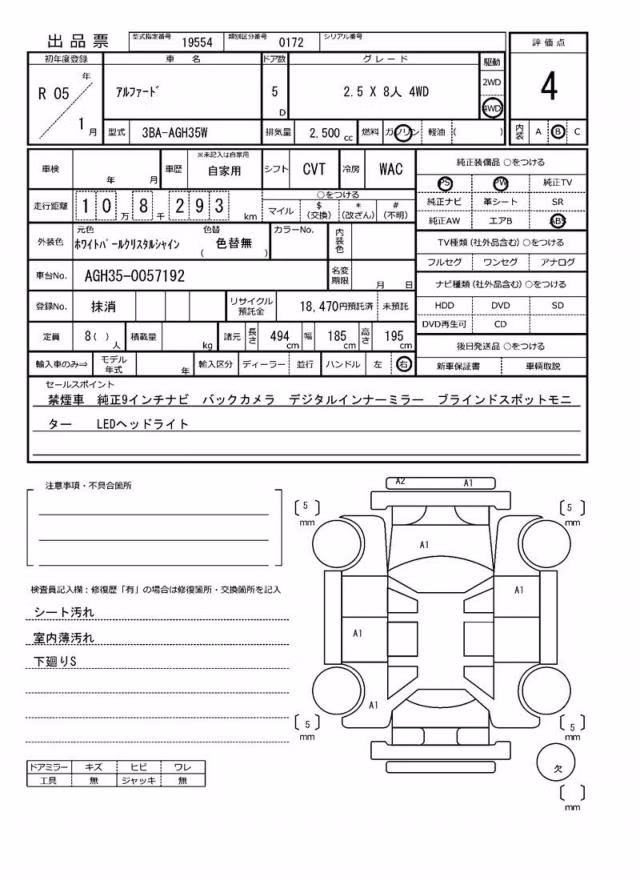 出品票 型式指定番号 19554 類別区分番号 0172 シリアル番号
初年度登録 車名 ドア数 グレード 駆動 評価点
R 05 年 1 月 アルファード 5 D 2.5 X 8人 4WD 2WD 4WD 4
型式 3BA-AGH35W 排気量 2,500 cc 燃料 ガソリン 軽油 ( ) 内装 A B C
車検 年 月 車歴 ※未記入は自家用 自家用 シフト CVT 冷房 WAC
走行距離 1 0 万 8 千 2 9 3 km ○をつける マイル $ (交換) * (改ざん) # (不明)
外装色 元色 ホワイトパールクリスタルシャイン 色替 ( 色替無 ) カラーNo. 内装色
車台No. AGH35-0057192 名変期限 月 日
登録No. 抹消 リサイクル預託金 18,470円預託済 未預託
定員 8( ) 人 積載量 kg 諸元 長さ 494 cm 幅 185 cm 高さ 195 cm
輸入車のみ⇒ モデル年式 年 輸入区分 ディーラー 並行 ハンドル 左 右
純正装備品 ○をつける
PS PW 純正TV
純正ナビ 革シート SR
純正AW エアB ABS
TV種類 (社外品含む) ○をつける
フルセグ ワンセグ アナログ
ナビ種類 (社外品含む) ○をつける
HDD DVD SD
DVD再生可 CD
後日発送品 ○をつける
新車保証書 車輌取説
セールスポイント
禁煙車 純正9インチナビ バックカメラ デジタルインナーミラー ブラインドスポットモニ
ター LEDヘッドライト
注意事項・不具合箇所
検査員記入欄：修復歴「有」の場合は修復箇所・交換箇所を記入
シート汚れ
室内薄汚れ
下廻りS
ドアミラー キズ ヒビ ワレ
工具 無 ジャッキ 無
A2 A1
[ 5 ] mm [ 5 ] mm
A1
A1
A1
A1
[ 5 ] mm [ 5 ] mm
欠
[ ] mm